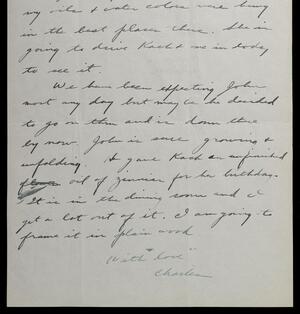 my oils & water colors were hung
in the best places there. She is
going to drive Kack & me in today
to see it.
We have been expecting John
most any day but maybe he decided
to go on thru and is down there
by now. John is sure growing &
unfolding. I gave Kack an unfinished
oil of zinnias for her birthday.
It is in the dining room and I
get a lot out of it. I am going to
frame it in plain wood
With "love"
Charles